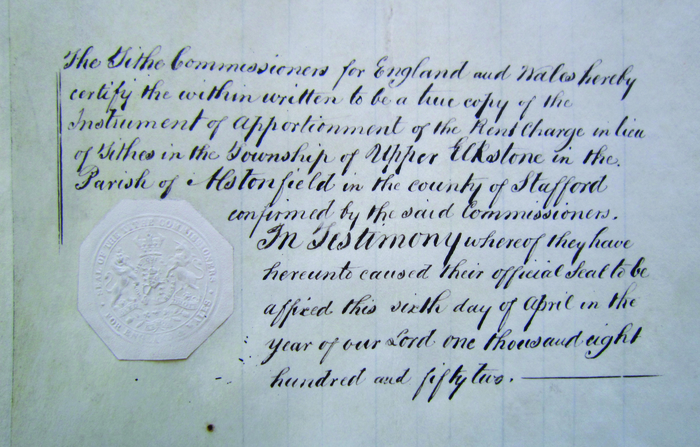 The Tithe Commissioners for England and Wales hereby
certify the within written to be a true copy of the
Instrument of Apportionment of the Rent Charge in lieu
of Tithes in the Township of Upper Elkstone in the
Parish of Alstonfield in the county of Stafford
confirmed by the said Commissioners.
In Testimony whereof they have
hereunto caused their official Seal to be
affixed this sixth day of April in the
year of our Lord one thousand eight
hundred and fifty two.